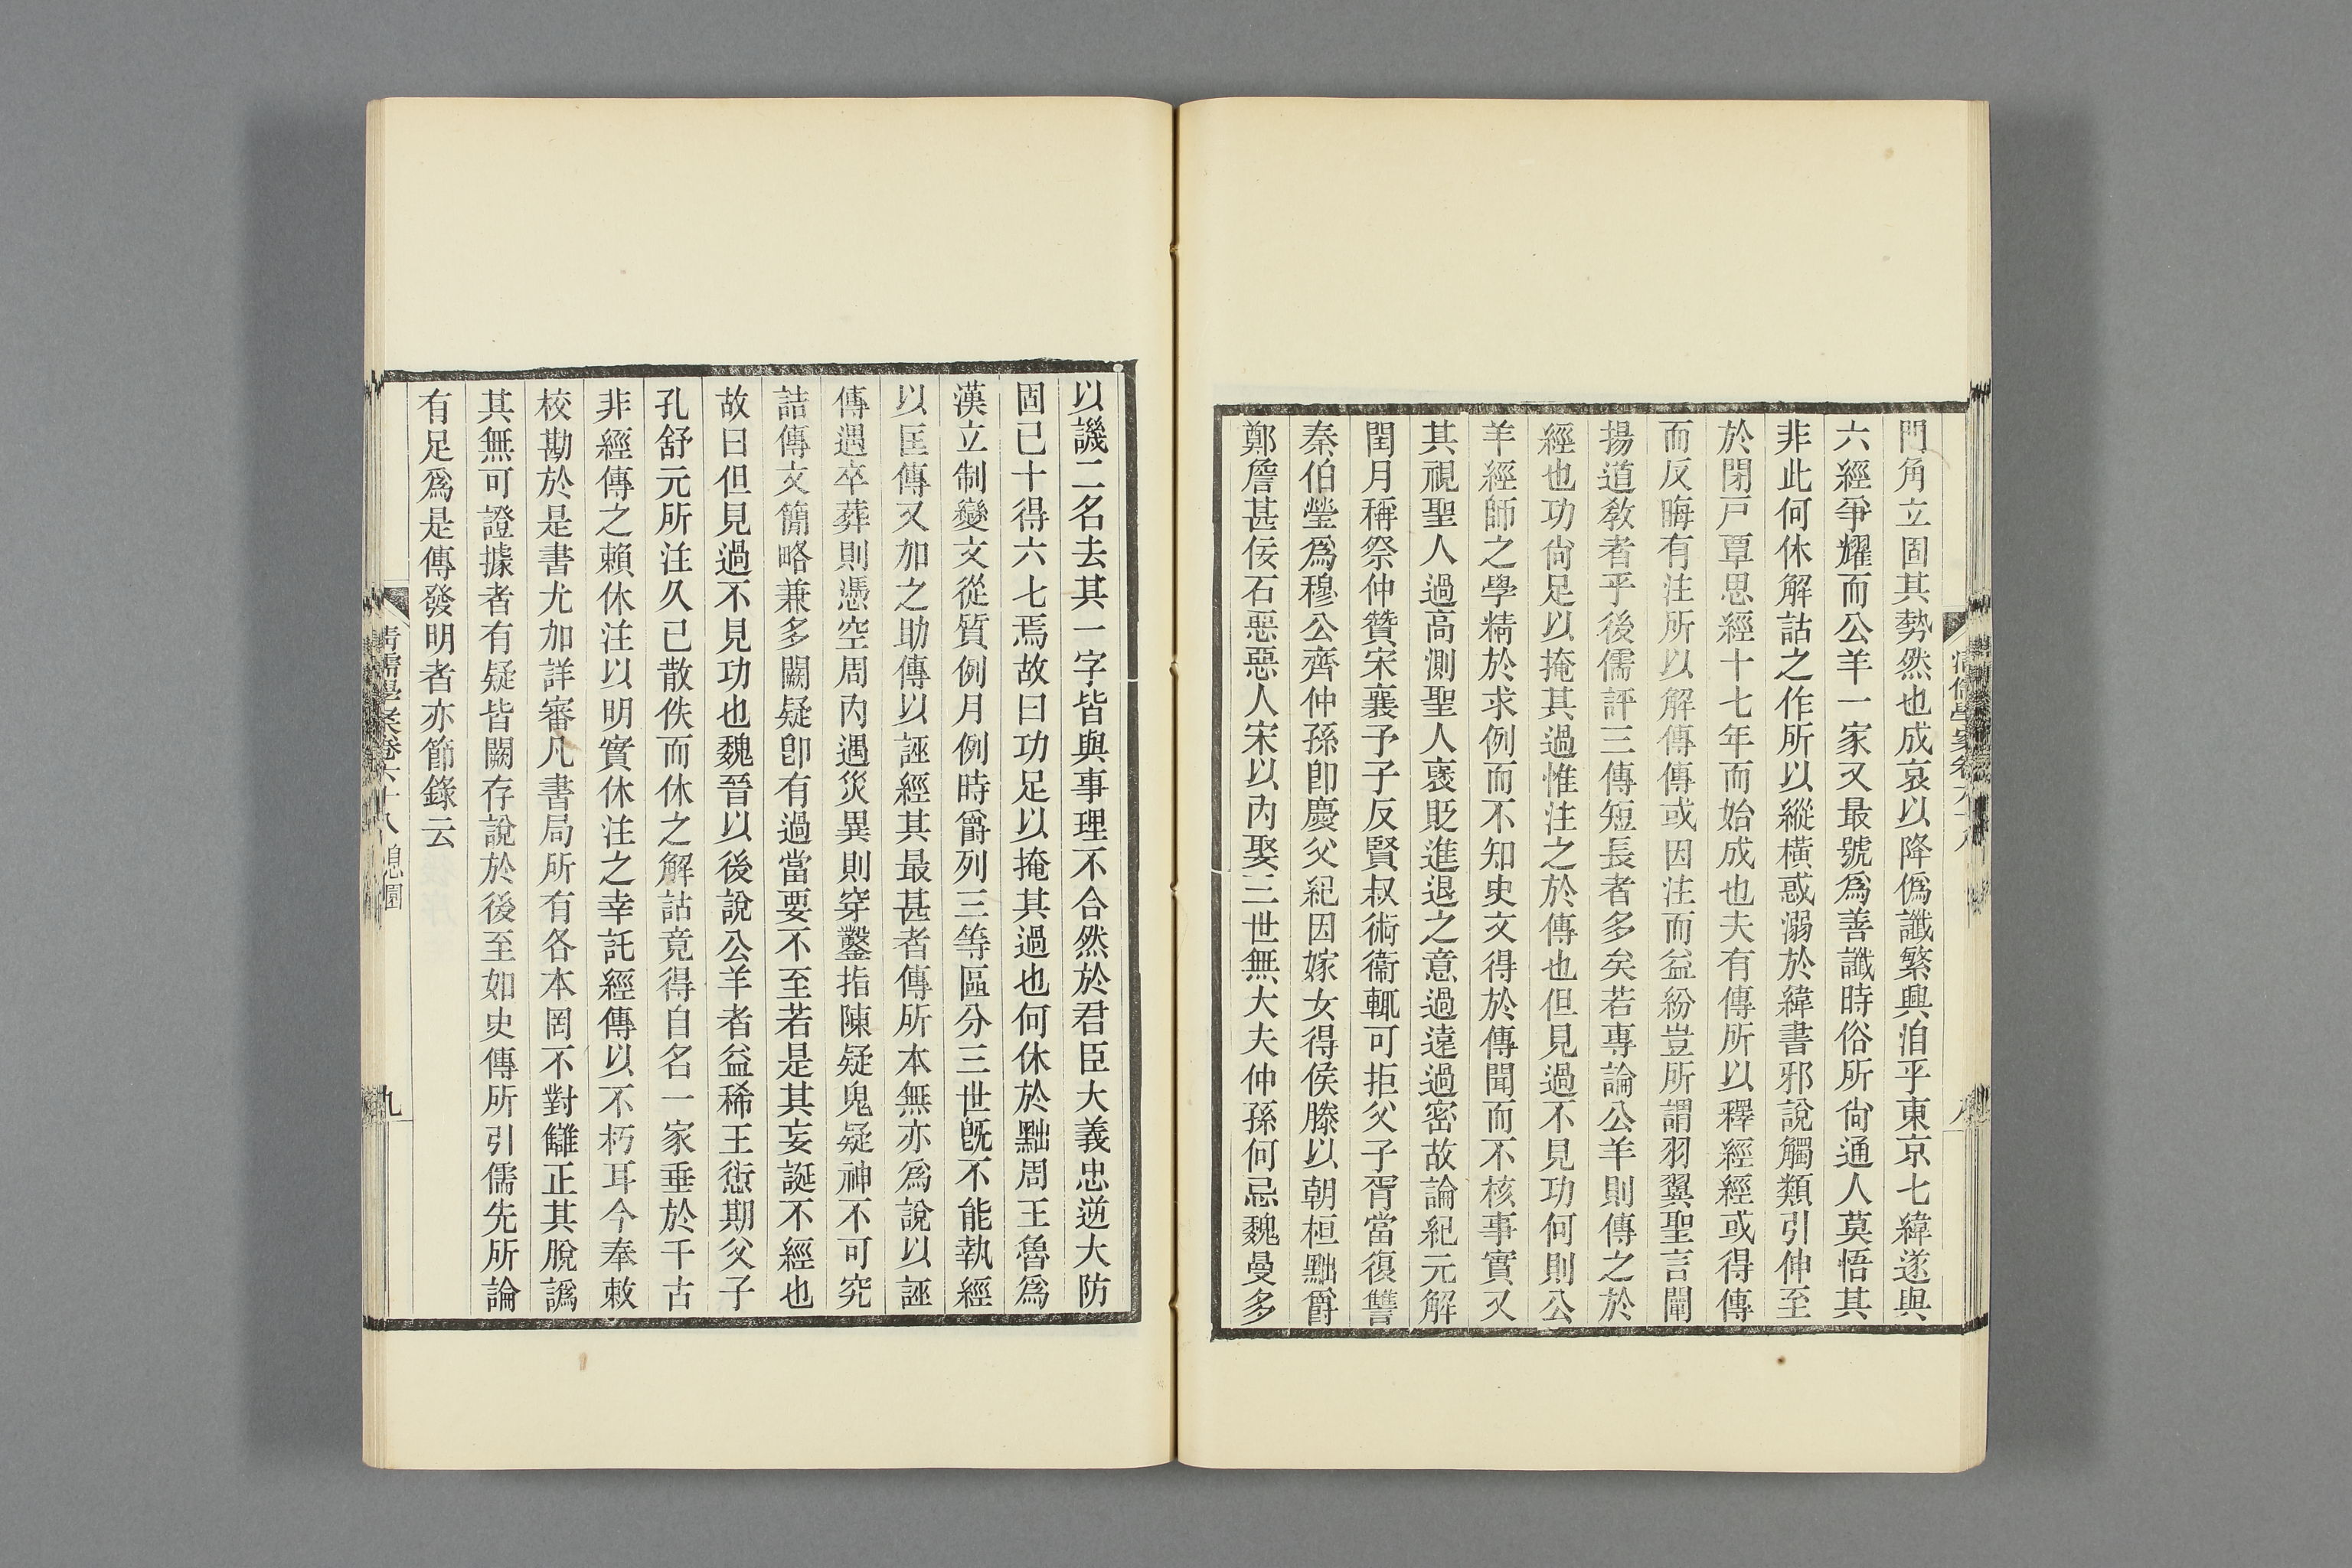 門角立固其勢然也成哀以降僞讖繁興洎乎東京七緯遂與
六經爭耀而公羊一家又最號爲善讖時俗所尙通人莫悟其
非此何休解詁之作所以縱橫惑溺於緯書邪說觸類引伸至
於閉戸覃思經十七年而始成也夫有傳所以釋經經或得傳
而反晦有注所以解傳傳或因注而益紛豈所謂羽翼聖言闡
揚道敎者乎後儒評三傳短長者多矣若專論公羊則傳之於
經也功尙足以掩其過惟注之於傳也但見過不見功何則公
羊經師之學精於求例而不知史文得於傳聞而不核事實又
其視聖人過高測聖人褒貶進退之意過遠過密故論紀元解
閏月稱祭仲贊宋襄予子反賢叔術衞輒可拒父子胥當復讐
秦伯罃爲穆公齊仲孫卽慶父紀因嫁女得侯滕以朝桓黜爵
鄭詹甚佞石惡惡人宋以內娶三世無大夫仲孫何忌魏曼多
清儒學案卷六十八
八
以譏二名去其一字皆與事理不合然於君臣大義忠逆大防
固已十得六七焉故曰功足以掩其過也何休於黜周王魯爲
漢立制變文從質例月例時爵列三等區分三世旣不能執經
以匡傳又加之助傳以誣經其最甚者傳所本無亦爲說以誣
傳遇卒葬則憑空周內遇災異則穿鑿指陳疑鬼疑神不可究
詰傳文簡略兼多闕疑卽有過當要不至若是其妄誕不經也
故曰但見過不見功也魏晉以後說公羊者益稀王愆期父子
孔舒元所注久已散佚而休之解詁竟得自名一家垂於千古
非經傳之賴休注以明實休注之幸託經傳以不朽耳今奉敕
校勘於是書尤加詳審凡書局所有各本罔不對讎正其脫譌
其無可證據者有疑皆闕存說於後至如史傳所引儒先所論
有足爲是傳發明者亦節錄云
清儒學案卷六十八 息園
九